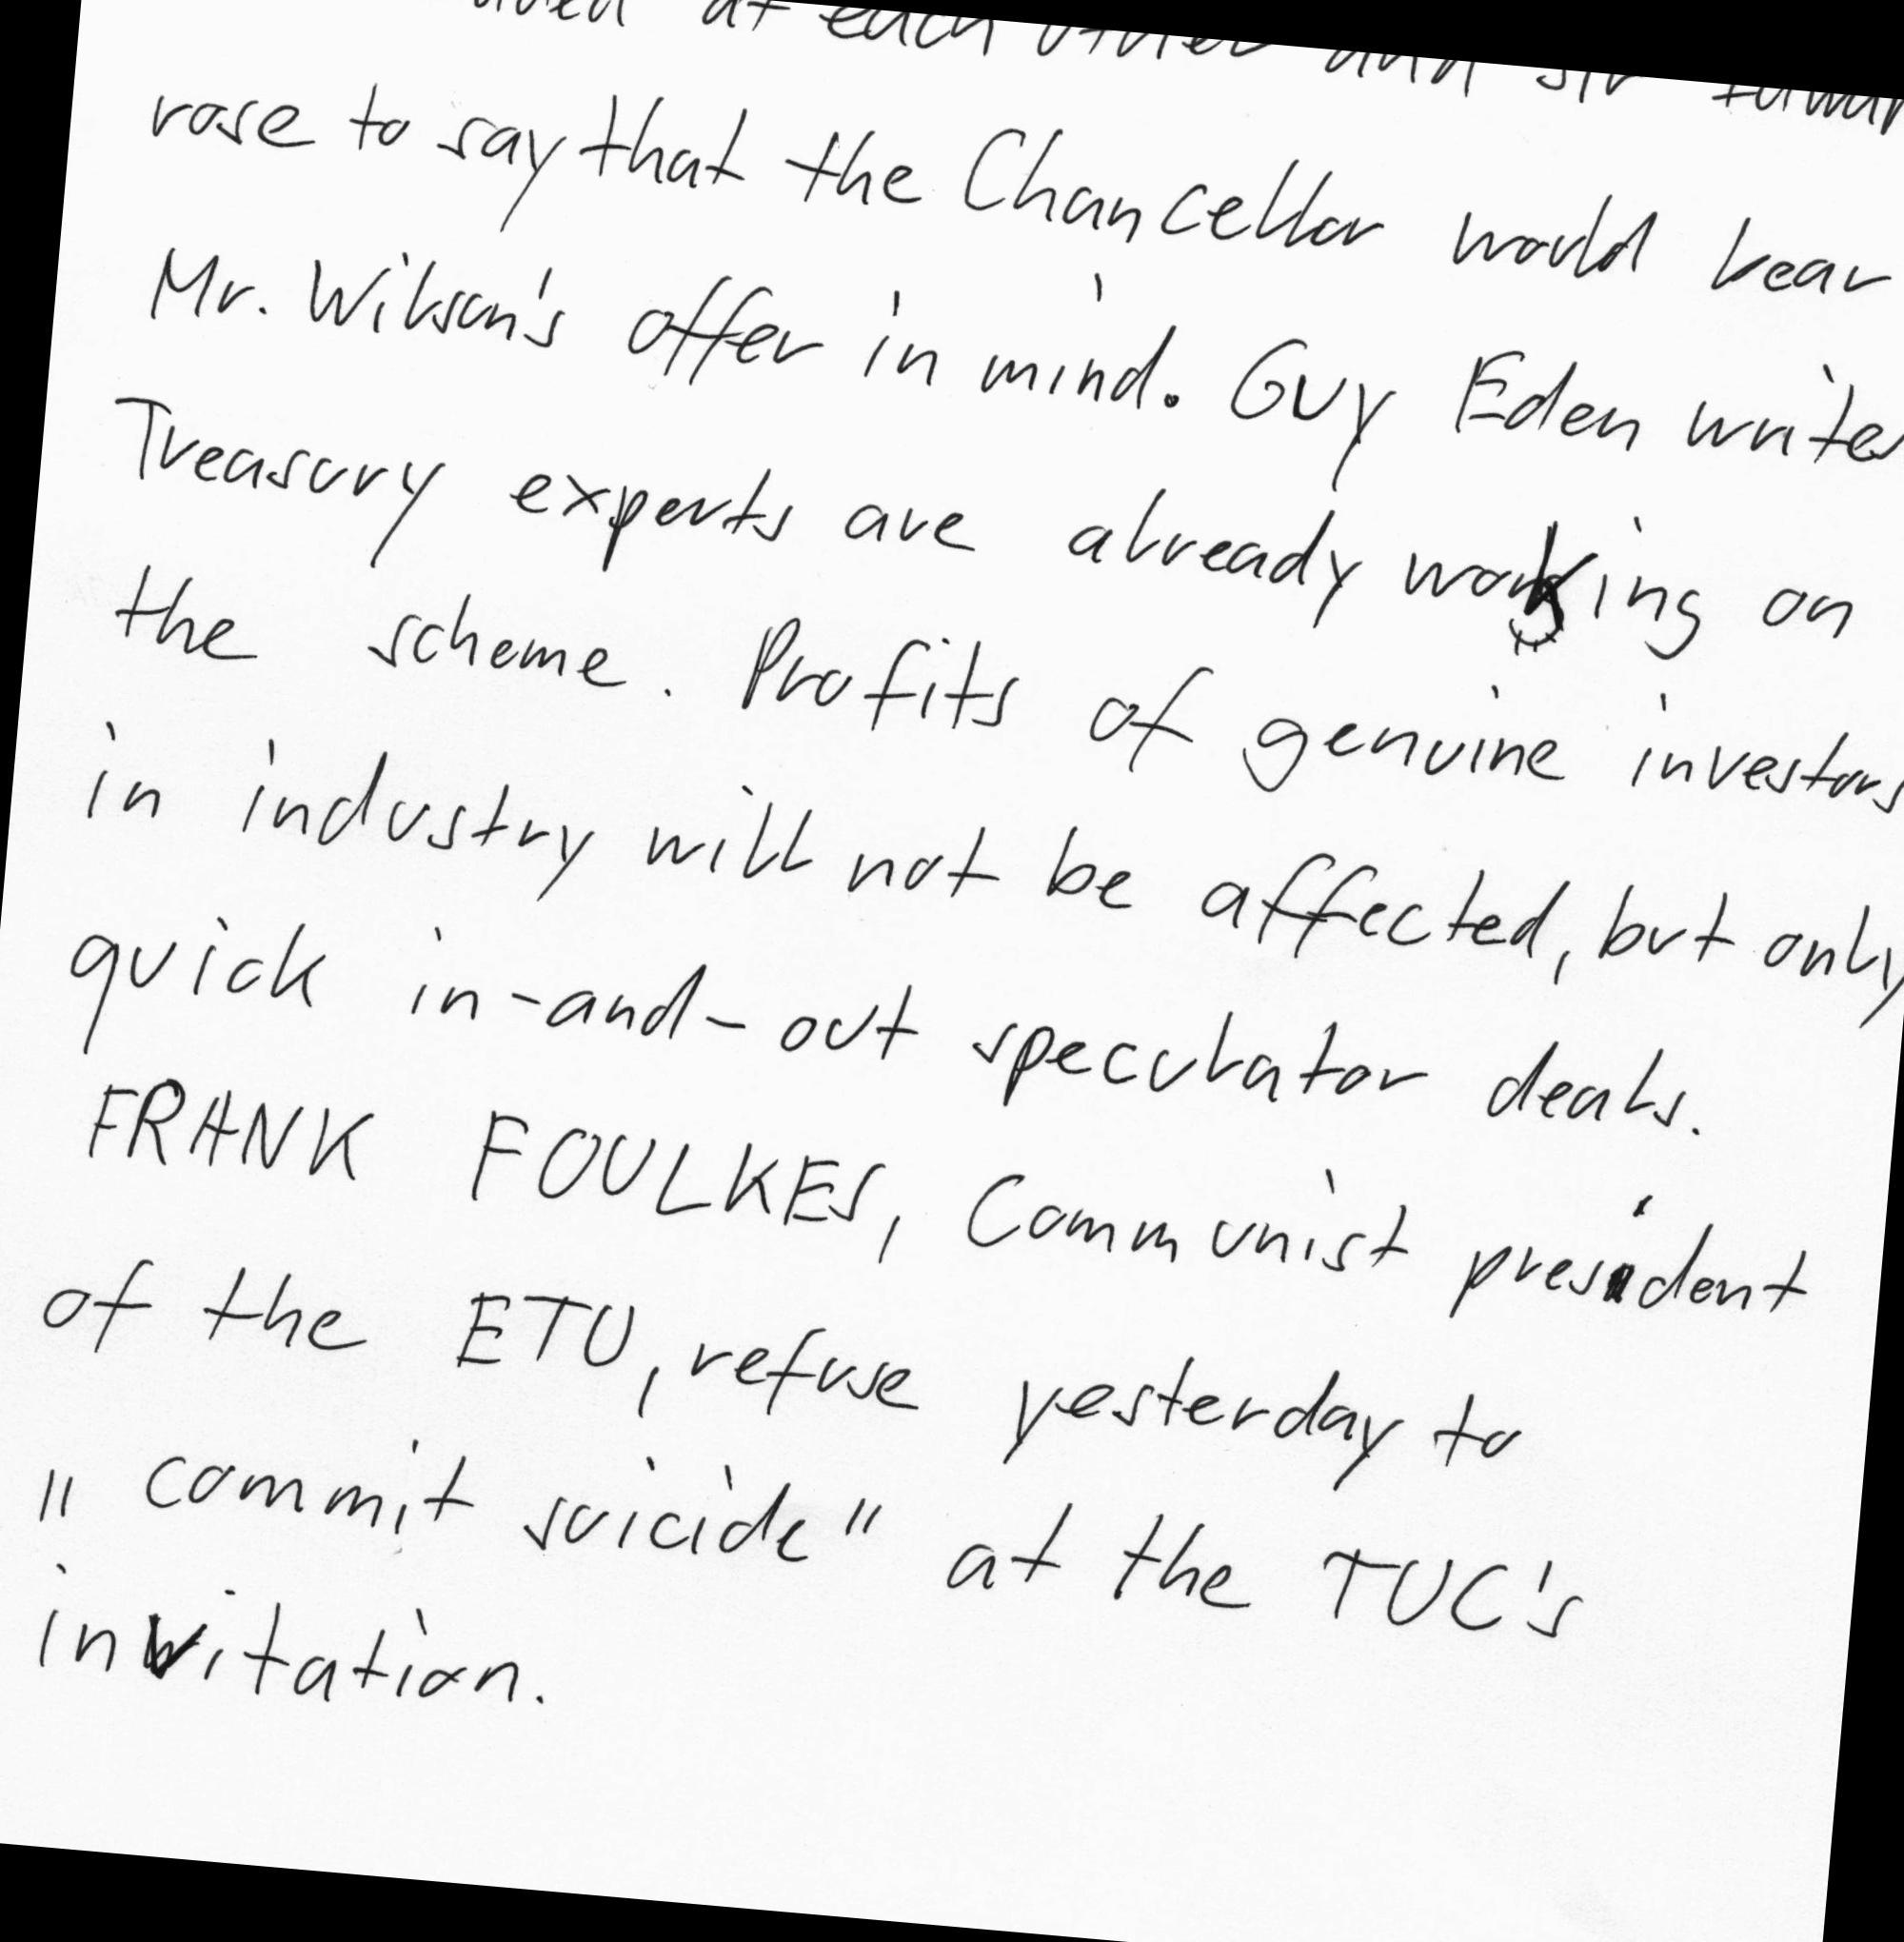 at each other and Sir
rose to say that the Chancellor would bear
Mr. Wilson's offer in mind. Guy Eden write
Treasury experts are already working on
the scheme. Profits of genuine investors
in industry will not be affected, but only
quick in-and-out speculator deals.
FRANK FOULKES, Communist president
of the ETU, refuse yesterday to
" commit suicide" at the TUC's
invitation.